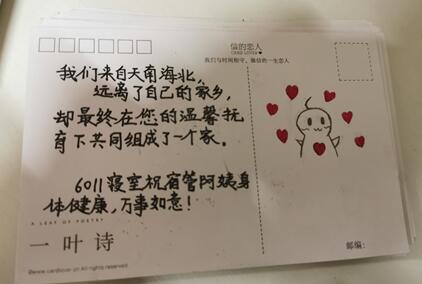 信的恋人
CARD LOVER
我们与时间相守，做信的一生恋人
我们来自天南海北，
远离了自己的家乡，
却最终在您的温馨抚
育下共同组成了一个家。
6011寝室祝宿管阿姨身
体健康，万事如意！
A LEAF OF POETRY
一叶诗
邮编：
©www.cardlover.cn All rights reserved.